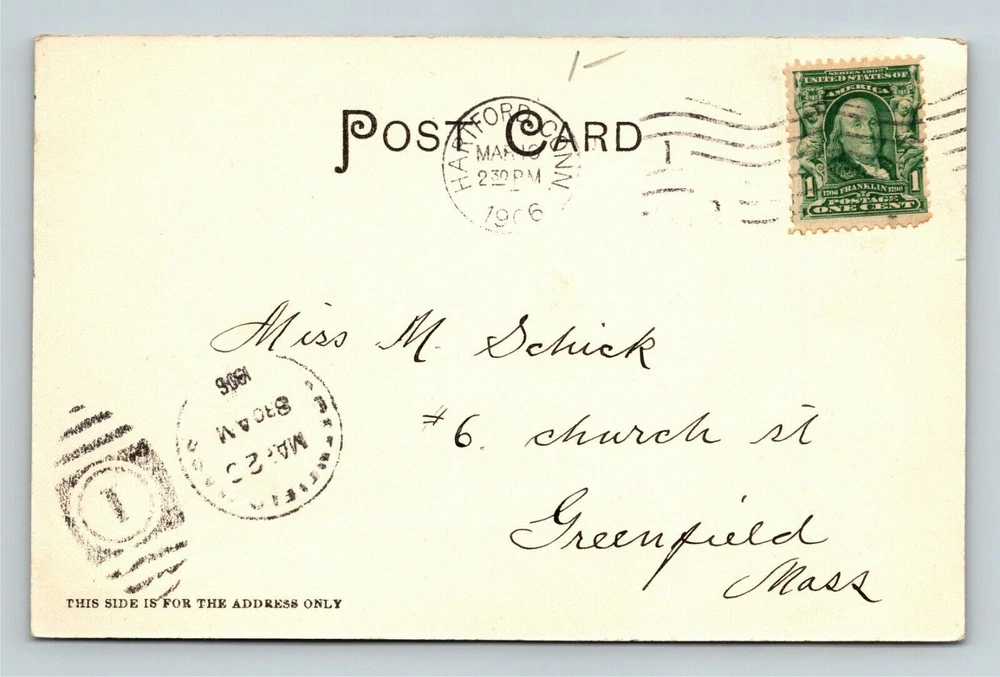 1-
POST CARD
HARTFORD, CONN.
2 30 P M
1906
1
SERIES 1902
UNITED STATES OF
AMERICA
1 1
1706 FRANKLIN 1790
POSTAGE
ONE CENT
Miss M. Schick
#6. church st
Greenfield
Mass
1906
8 30 A M
1
THIS SIDE IS FOR THE ADDRESS ONLY